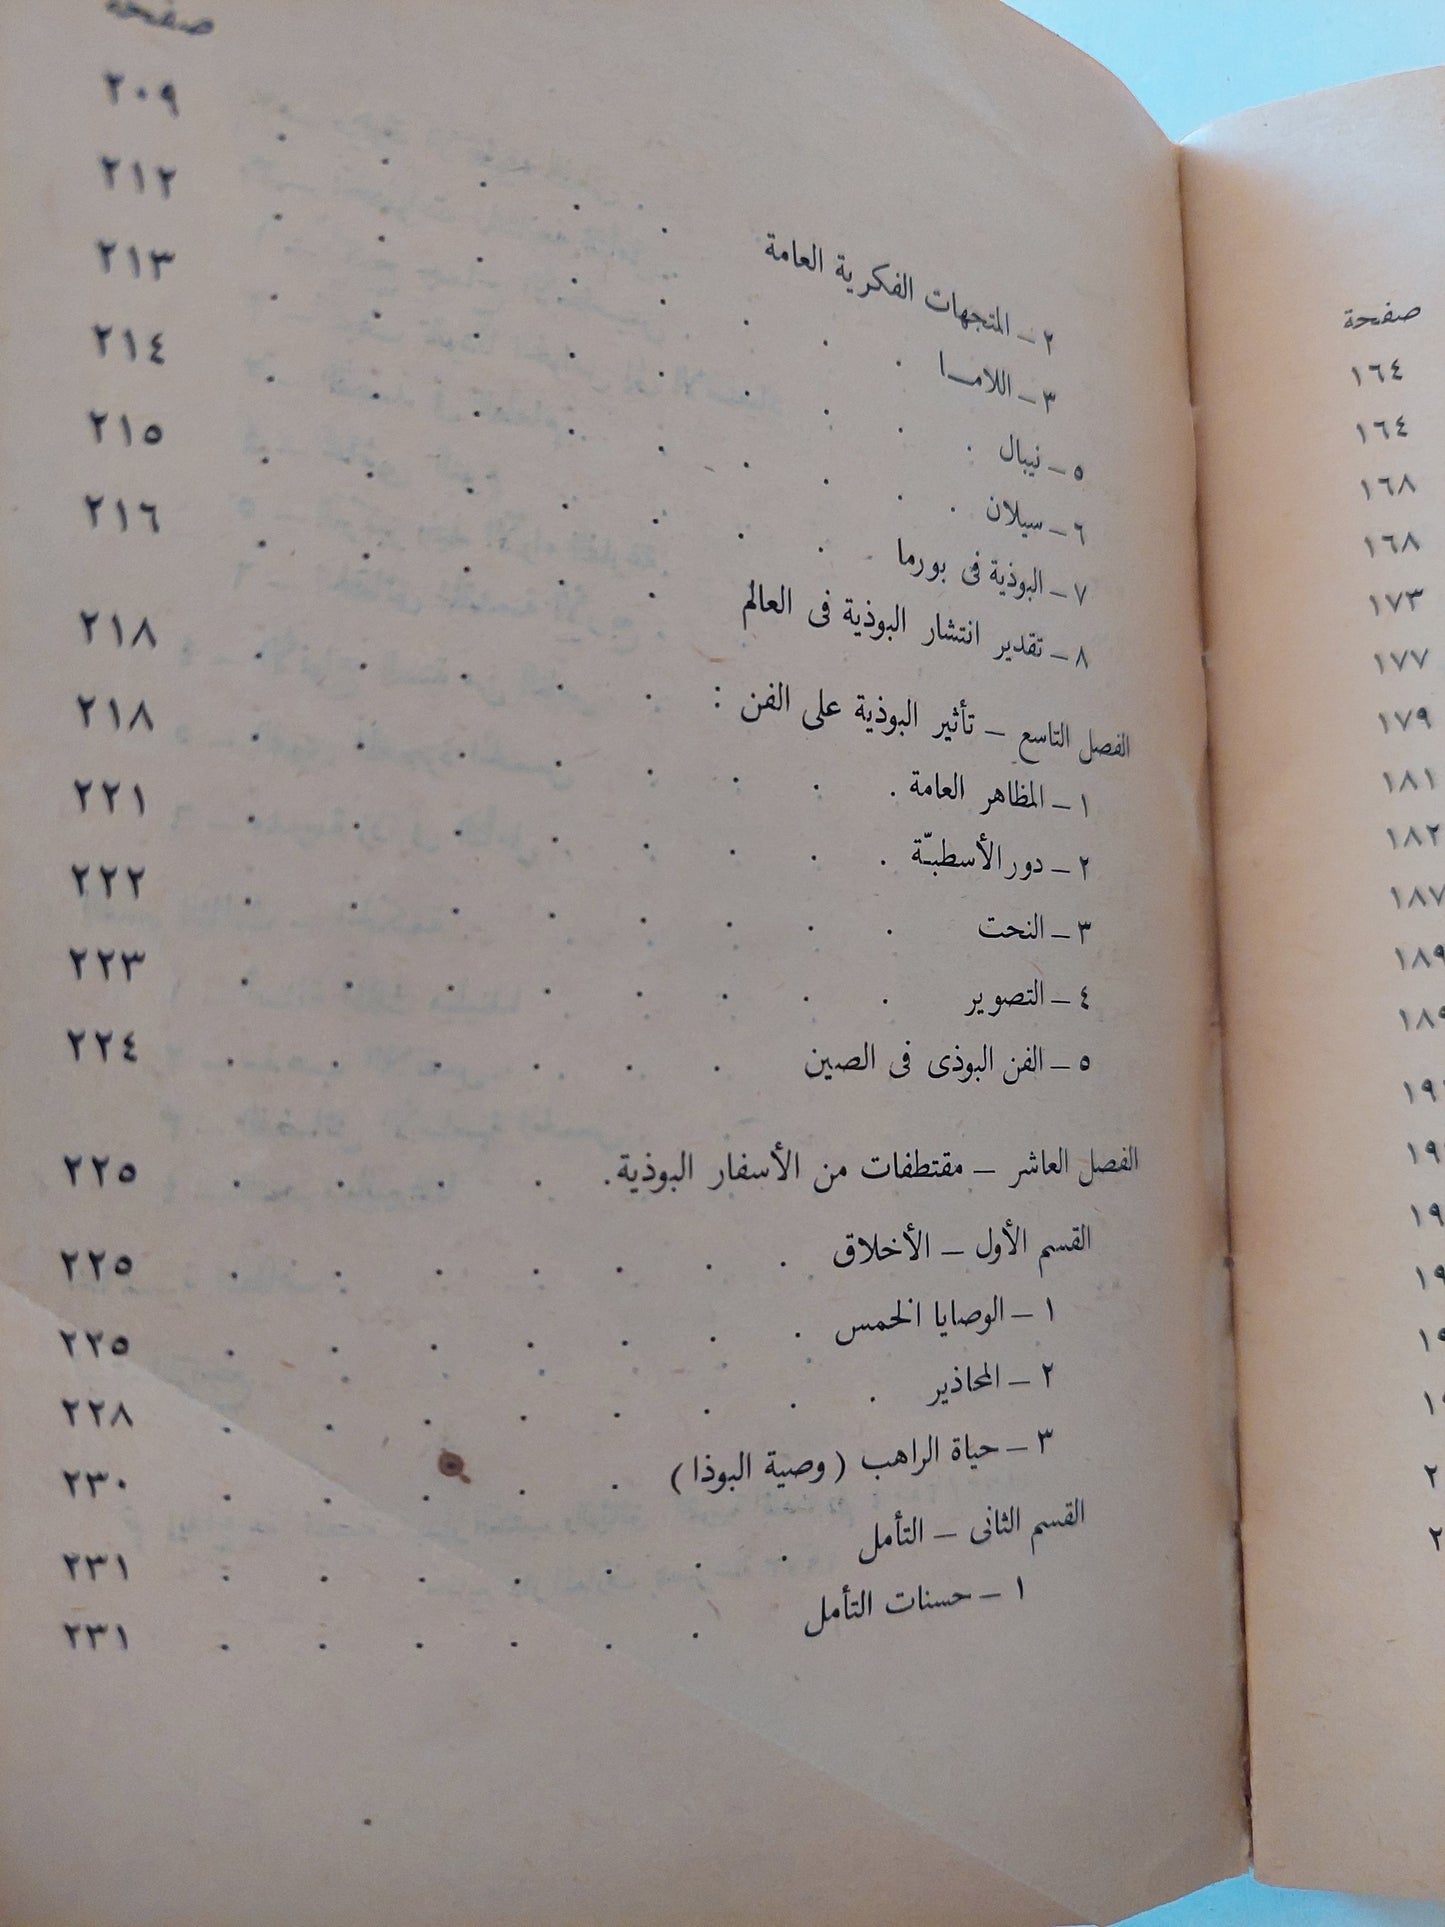 صفحة
١٦٤
١٦٤
١٦٨
١٦٨
١٧٣
١٧٧
١٧٩
١٨١
١٨٢
١٨٧
١٨٩
صفحة
٢ – المتجهات الفكرية العامة . . . . . ٢٠٩
٣ – اللامـا . . . . . . . ٢١٢
٥ – نيبال . . . . . . . ٢١٣
٦ – سيلان . . . . . . . ٢١٤
٧ – البوذية فى بورما . . . . . . ٢١٥
٨ – تقدير انتشار البوذية فى العالم . . . . . ٢١٦
الفصل التاسع – تأثير البوذية على الفن : . . . . . ٢١٨
١ – المظاهر العامة . . . . . . . ٢١٨
٢ – دور الأسطبّة . . . . . . . ٢٢١
٣ – النحت . . . . . . . ٢٢٢
٤ – التصوير . . . . . . . ٢٢٣
٥ – الفن البوذى فى الصين . . . . . . ٢٢٤
الفصل العاشر – مقتطفات من الأسفار البوذية . . . . . ٢٢٥
القسم الأول – الأخلاق . . . . . . . ٢٢٥
١ – الوصايا الخمس . . . . . . . ٢٢٥
٢ – المحاذير . . . . . . . . ٢٢٨
٣ – حياة الراهب ( وصية البوذا ) . . . . . ٢٣٠
القسم الثانى – التأمل . . . . . . . ٢٣١
١ – حسنات التأمل . . . . . . ٢٣١